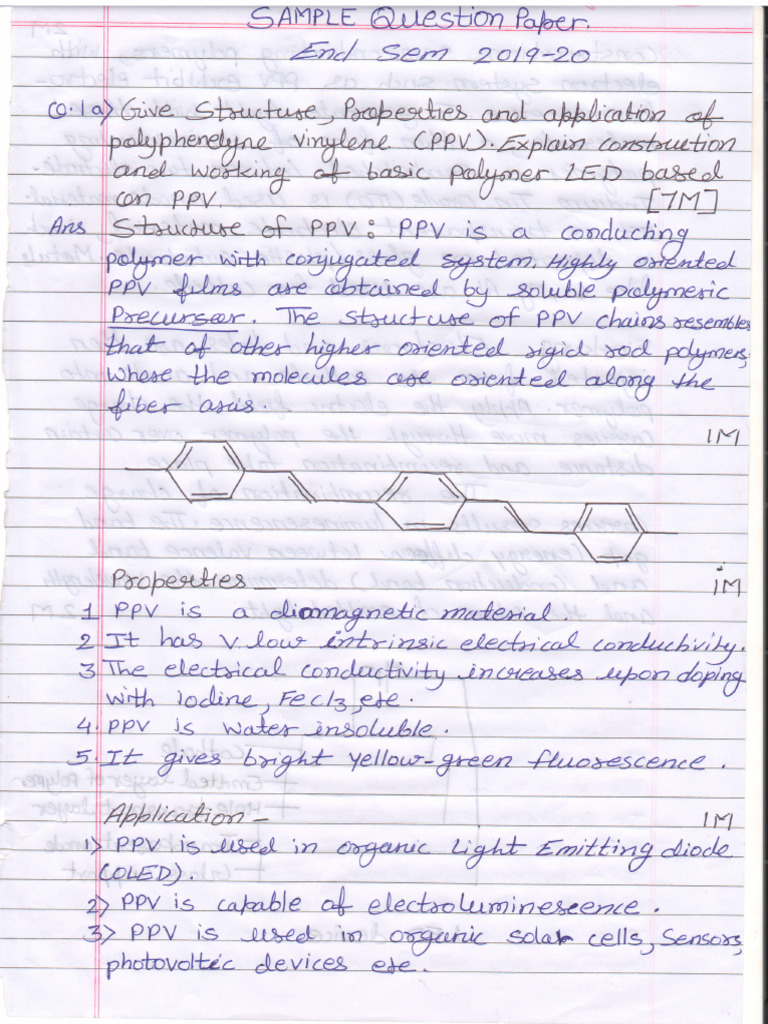 SAMPLE Question Paper.
End Sem 2019-20
Q.1a) Give Structure, Properties and application of
polyphenelyne vinylene (PPV). Explain construction
and working of basic polymer LED based
on PPV. [7M]
Ans Structure of PPV: PPV is a conducting
polymer with conjugated system. Highly oriented
PPV films are obtained by soluble polymeric
Precursor. The structure of PPV chains resembles
that of other higher oriented rigid rod polymers,
where the molecules are oriented along the
fiber axis.
1M
Properties - 1M
1 PPV is a diamagnetic material.
2 It has V. low intrinsic electrical conductivity.
3 The electrical conductivity increases upon doping
with iodine, FeCl3, etc.
4. PPV is water insoluble.
5. It gives bright yellow-green fluorescence.
Application - 1M
1) PPV is used in organic Light Emitting diode
(OLED).
2) PPV is capable of electroluminescence.
3) PPV is used in organic solar cells, sensors,
photovoltic devices etc.